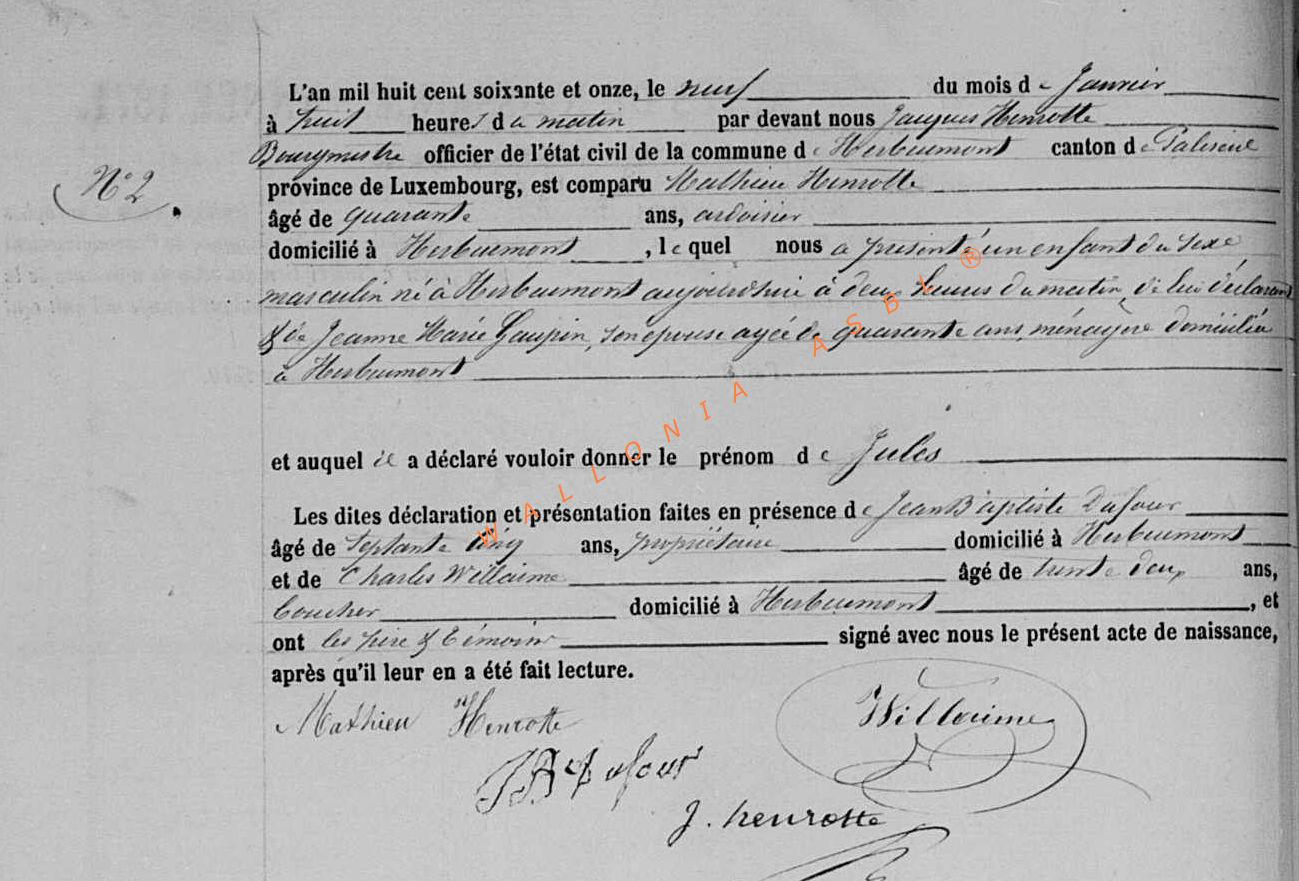 L'an mil huit cent soixante et onze, le neuf du mois de Janvier
à huit heures du matin par devant nous Jacques Henrotte
Bourgmestre officier de l'état civil de la commune de Herbeumont canton de Paliseul
N° 2.
province de Luxembourg, est comparu Mathieu Henrotte
âgé de quarante ans, ardoisier
domicilié à Herbeumont, lequel nous a présenté un enfant du sexe
masculin né à Herbeumont aujourd'hui à deux heures du matin, de lui déclarant
& de Jeanne Marie Gaupin, son épouse agée de quarante ans, ménagère domiciliée
à Herbeumont
et auquel il a déclaré vouloir donner le prénom de Jules
Les dites déclaration et présentation faites en présence de Jean Baptiste Dufour
âgé de septante cinq ans, propriétaire domicilié à Herbeumont
et de Charles Willaime âgé de trente deux ans,
boucher domicilié à Herbeumont, et
ont les père & témoins signé avec nous le présent acte de naissance,
après qu'il leur en a été fait lecture.
Mathieu Henrotte Willaime
JBte Dufour
J. henrotte
WALLONIA ASBL ®